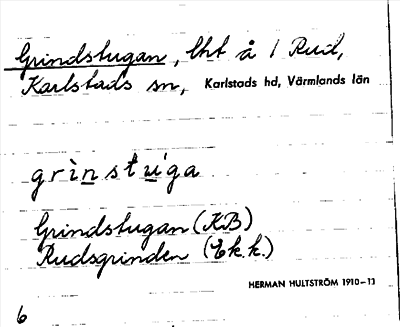 Grindstugan, lht å 1 Rud,
Karlstads sn, Karlstads hd, Värmlands län
grìnstu̲'ga
Grindstugan (KB)
Rudsgrinden (Ek.k.)
HERMAN HULTSTRÖM 1910-13
6